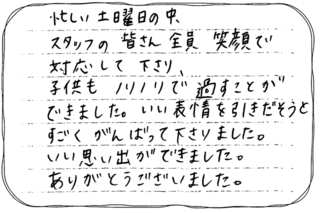 忙しい土曜日の中、
スタッフの皆さん全員笑顔で
対応して下さり、
子供もノリノリで過すことが
できました。いい表情を引きだそうと
すごくがんばって下さりました。
いい思い出ができました。
ありがとうございました。